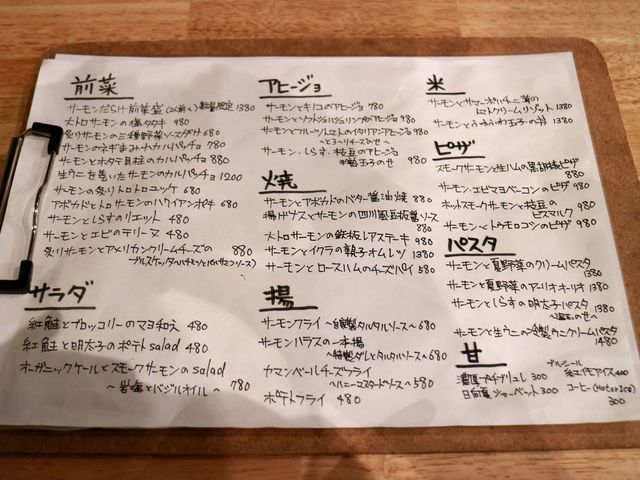 前菜
サーモンだらけ前菜盛(2人前〜)数量限定 1380
大トロサーモンの塩タタキ 980
炙りサーモンの三種野菜ソースがけ 680
サーモンのネギまみれカルパッチョ 780
サーモンとホタテ貝柱のカルパッチョ 880
生ウニを巻いたサーモンのカルパッチョ 1200
サーモンの炙りトロトロユッケ 680
アボカドとトロサーモンのハワイアンポキ 680
サーモンとしらすのリエット 480
サーモンとエビのテリーヌ 480
炙りサーモンとアメリカンクリームチーズの 880
ブルスケッタ〜ハチミツとバルサミコソース〉
サラダ
紅鮭とブロッコリーのマヨ和え 480
紅鮭と明太子のポテトsalad 480
オーガニックケールとスモークサーモンのsalad
〜岩塩とバジルオイル〜 780
アヒージョ
サーモンとキノコのアヒージョ 980
サーモンとフルーツトマトのイタリアンアヒージョ 980
〜とろ〜りチーズのせ〜
サーモン・しらす・枝豆のアヒージョ
半熟玉子のせ 980
焼
サーモンとアボカドのバター醤油焼 880
揚げナスとサーモンの四川風豆板醤ソース 880
大トロサーモンの鉄板レアステーキ 980
サーモンとイクラの親子オムレツ 1380
サーモンとロースハムのチーズパイ 580
揚
サーモンフライ 〜自家製タルタルソース〜 680
サーモンハラスの一本揚
〜特製ダレとタルタルソース〜 680
カマンベールチーズフライ
〜ハニーマスタードソース〜 580
ポテトフライ 480
米
サーモンとサマーポルチーニ茸の
トマトクリームリゾット 1380
サーモンとふわふわ玉子の丼 1380
ピザ
スモークサーモンと生ハムの黒胡椒ピザ
880
サーモン・エビマヨベーコンのピザ 980
ホットスモークサーモンと枝豆の 980
ビスマルク
サーモンとトウモロコシのピザ 980
パスタ
サーモンと夏野菜のクリームパスタ
1380
サーモンと夏野菜のアーリオオーリオ 1380
サーモンとしらすの明太子パスタ 1380
〜温玉のせ〜
サーモンと生ウニの冷製カニクリームパスタ
1480
甘
濃厚プチブリュレ 300
日向夏シャーベット 300
ブルーシール
紅イモアイス 400
コーヒー(Hot or Ice)
300